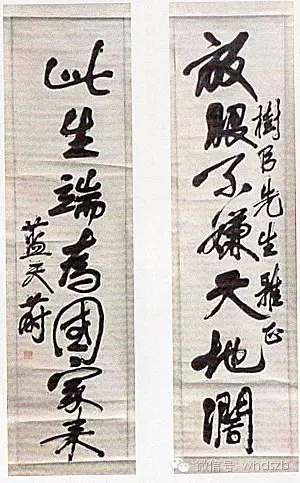 放眼不嫌天地濶
樹官先生雅正
此生端為國家来
藍天蔚
微信号: whdszb